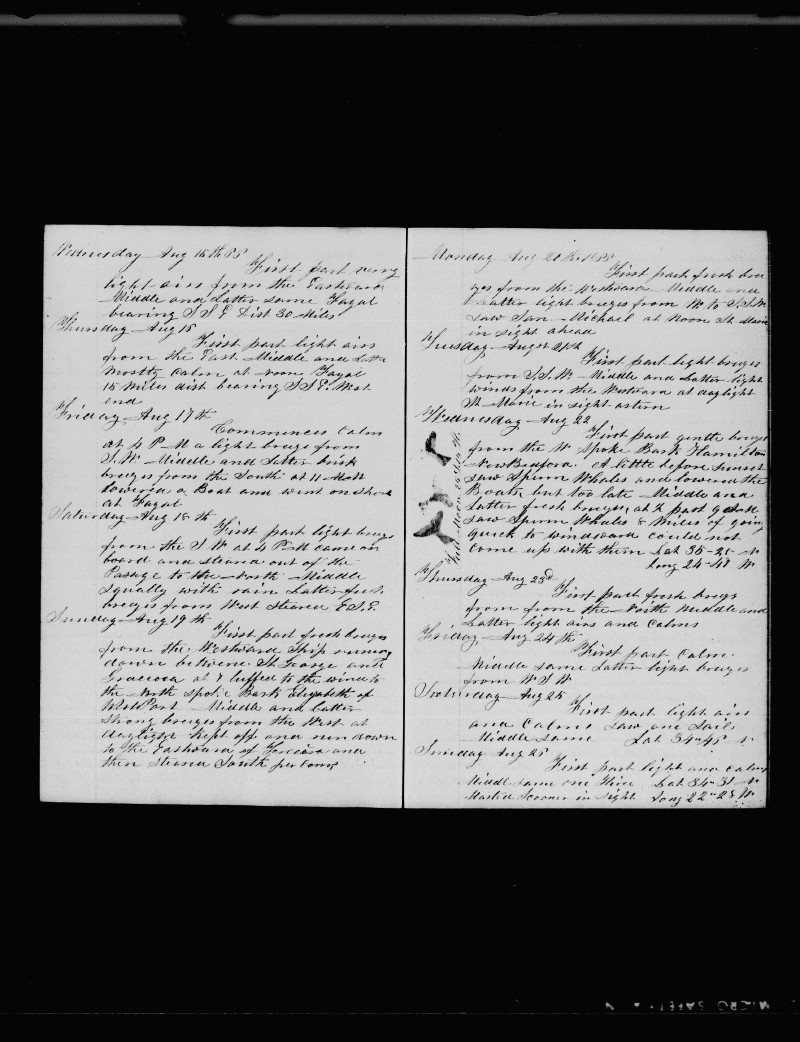 Wednesday Aug 15th 55
First part very
light airs from the Eastward
Middle and Latter same Fayal
bearing S S E Dist 30 Miles
Thursday Aug 16
First part light airs
from the East Middle and Latter
mostly calm at noon Fayal
15 Miles dist bearing S S E. West
end
Friday Aug 17th
Commences Calm
at 4 P M a light breeze from
S. W. Middle and Latter brisk
breezes from the South at 11
lowered a Boat and went on shore
at Fayal
Saturday Aug 18th
First part light breezes
from the S W at 4 P M came on
board and steered out of the
Passage to the North Middle
squally with rain Latter
breezes from West Steered E.S.E.
Sunday Aug 19th
First part fresh breezes
from the Westward Ship running
down between St George and
Graciosa at 8 luffed to the wind to
the North Spoke Bark Elizabeth of
West Port Middle and Latter
strong breezes from the West at
daylight kept off and run down
to the Eastward of Terceira and
then steered South per Comp
Monday Aug 20th 1855
First part fresh bree
zes from the Westward Middle and
Latter light breezes from W. to S.S.W.
Saw San Michael at Noon St. Marie
in sight ahead
Tuesday August 21th
First part light breezes
from S.S.W. Middle and Latter light
winds from the Westward at daylight
St Marie in sight astern
Wednesday Aug 22
First part gentle breezes
from the W Spoke Bark Hamilton
New Bedford. A little before Sunset
saw Sperm Whales and lowered the
Boats, but too late Middle and
Latter fresh breezes, at 2 past
saw Sperm Whales 8 miles of going
quick to windward could not
come up with them Lat 35-21 N
Long 24-48 W
Full Moon
Thursday Aug 23d
First part fresh breezes
from from the North Middle and
Latter light airs and Calms
Friday Aug 24th
First part Calm.
Middle same Latter light breezes
from W S W
Saturday Aug 25
First part light airs
and Calms Saw one Sail
Middle same Lat 34-45 N
Sunday Aug 26
First part light and calms
Middle same one Three Lat 34-31 N
Masted Scooner in sight Long 22-28 W